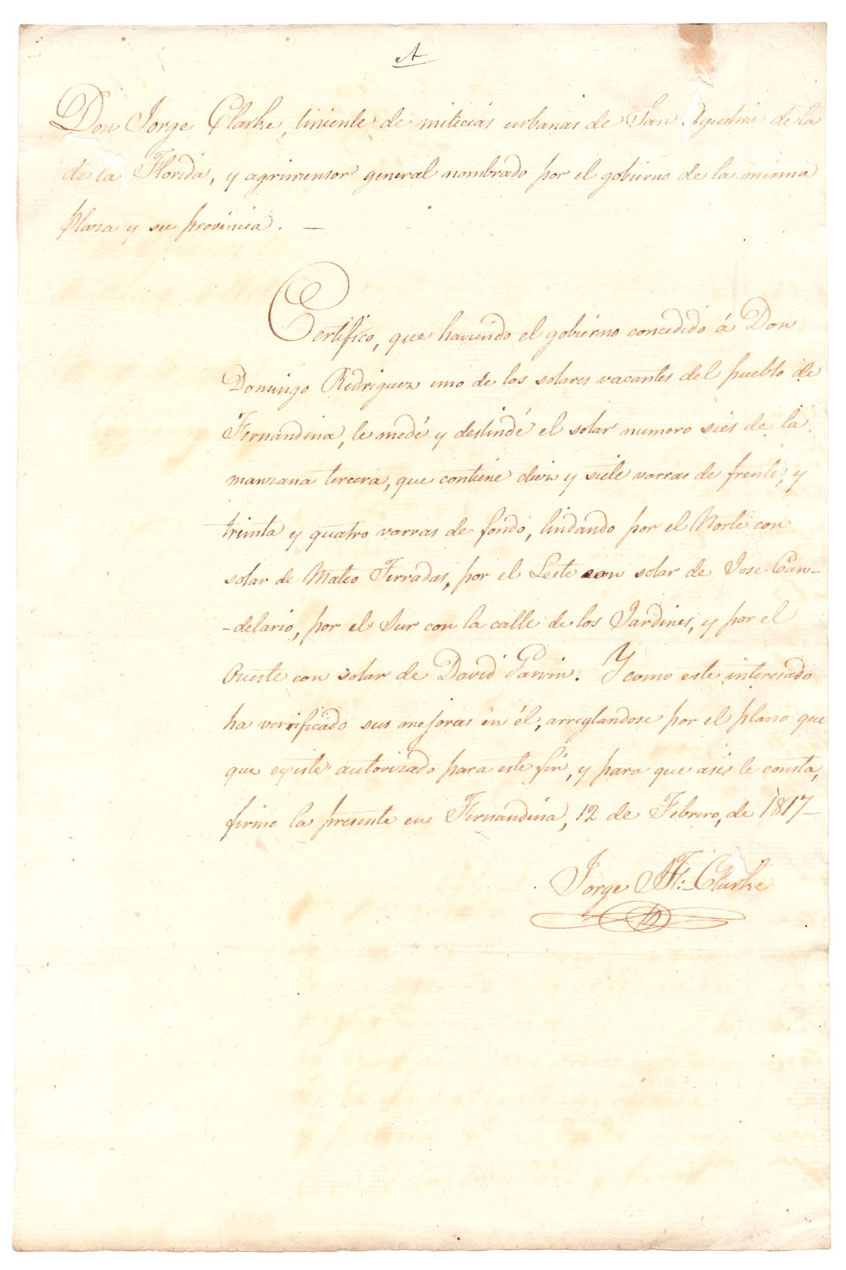 A
Don Jorge Clarke, teniente de milicias urbanas de San Agustin de la
de la Florida, y agrimensor general nombrado por el gobierno de la misma
plaza y su provincia. —
Certifico, que haviendo el gobierno concedido á Don
Domingo Rodriguez uno de los solares vacantes del pueblo de
Fernandina, le medé y deslindé el solar numero seis de la
manzana tercera, que contiene diez y siete varras de frente, y
treinta y quatro varras de fondo, lindando por el Norte con
solar de Mateo Ferradas, por el Leste con solar de Jose Can-
-delario, por el Sur con la calle de los Jardines, y por el
Oueste con solar de David Garvin. Y como este interesado
ha verrificado sus mejoras en él, arreglandose por el plano que
que existe autorizado para este fin, y para que asi le consta,
firmo la presente en Fernandina, 12 de Febrero, de 1817—
Jorge J. F: Clarke